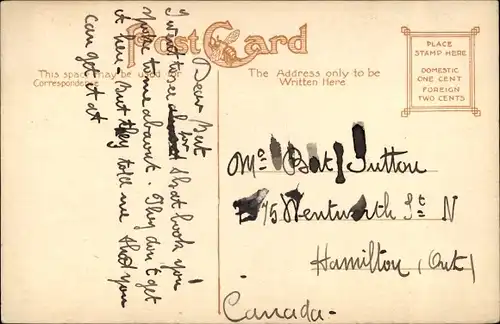 Post Card
This space may be used for
Correspondence
The Address only to be
Written Here
PLACE
STAMP HERE
DOMESTIC
ONE CENT
FOREIGN
TWO CENTS
Dear Bat
I went over for
that book you
spoke to me about. They don't get
it here. But they told me that you
can get it at
Mr Bat Sutton
75 Wentworth St N
Hamilton (Ont)
Canada-